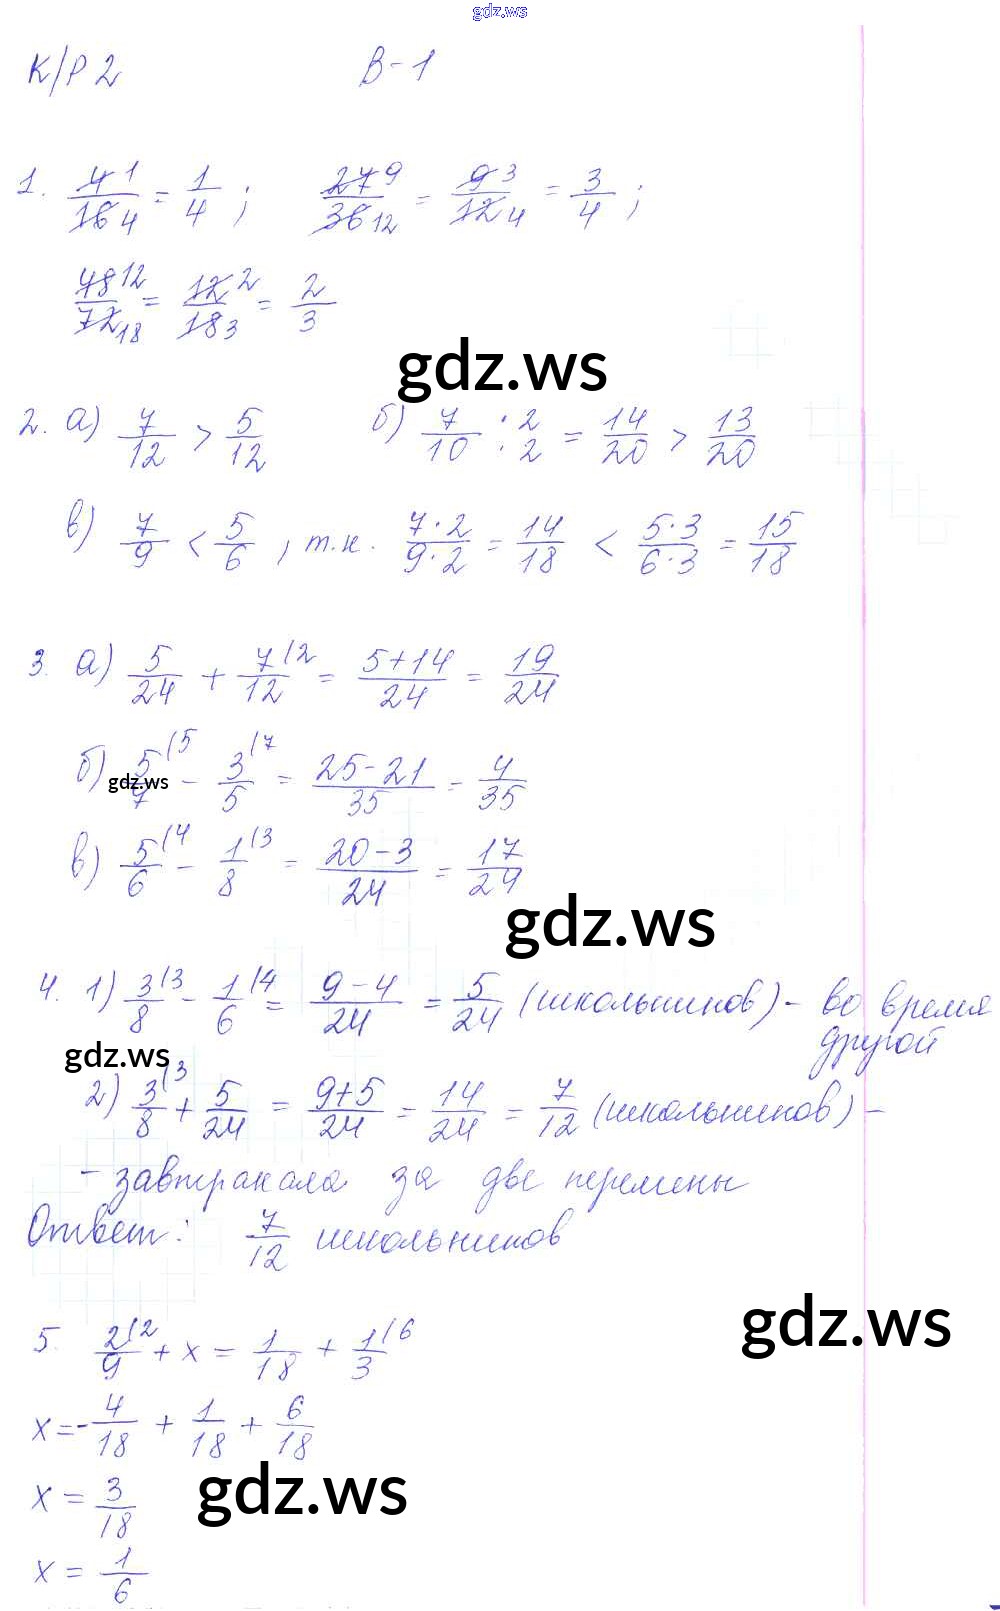 gdz.ws
К/Р 2 В-1
1. 4 1/16 4 = 1/4 ; 27 9/36 12 = 9 3/12 4 = 3/4 ;
48 12/72 18 = 12 2/18 3 = 2/3
gdz.ws
2. а) 7/12 > 5/12 б) 7/10 · 2/· 2 = 14/20 > 13/20
в) 7/9 < 5/6 , т.к. 7·2/9·2 = 14/18 < 5·3/6·3 = 15/18
3. а) 5/24 + 7/12 (2 = 5+14/24 = 19/24
б) 5/7 (5 - 3/5 (7 = 25-21/35 = 4/35
gdz.ws
в) 5/6 (4 - 1/8 (3 = 20-3/24 = 17/24
gdz.ws
4. 1) 3/8 (3 - 1/6 (4 = 9-4/24 = 5/24 (школьников) - во время
другой
gdz.ws
2) 3/8 (3 + 5/24 = 9+5/24 = 14/24 = 7/12 (школьников) -
- завтракала за две перемены
Ответ: 7/12 школьников
gdz.ws
5. 2/9 (2 + x = 1/18 + 1/3 (6
x = - 4/18 + 1/18 + 6/18
gdz.ws
x = 3/18
x = 1/6